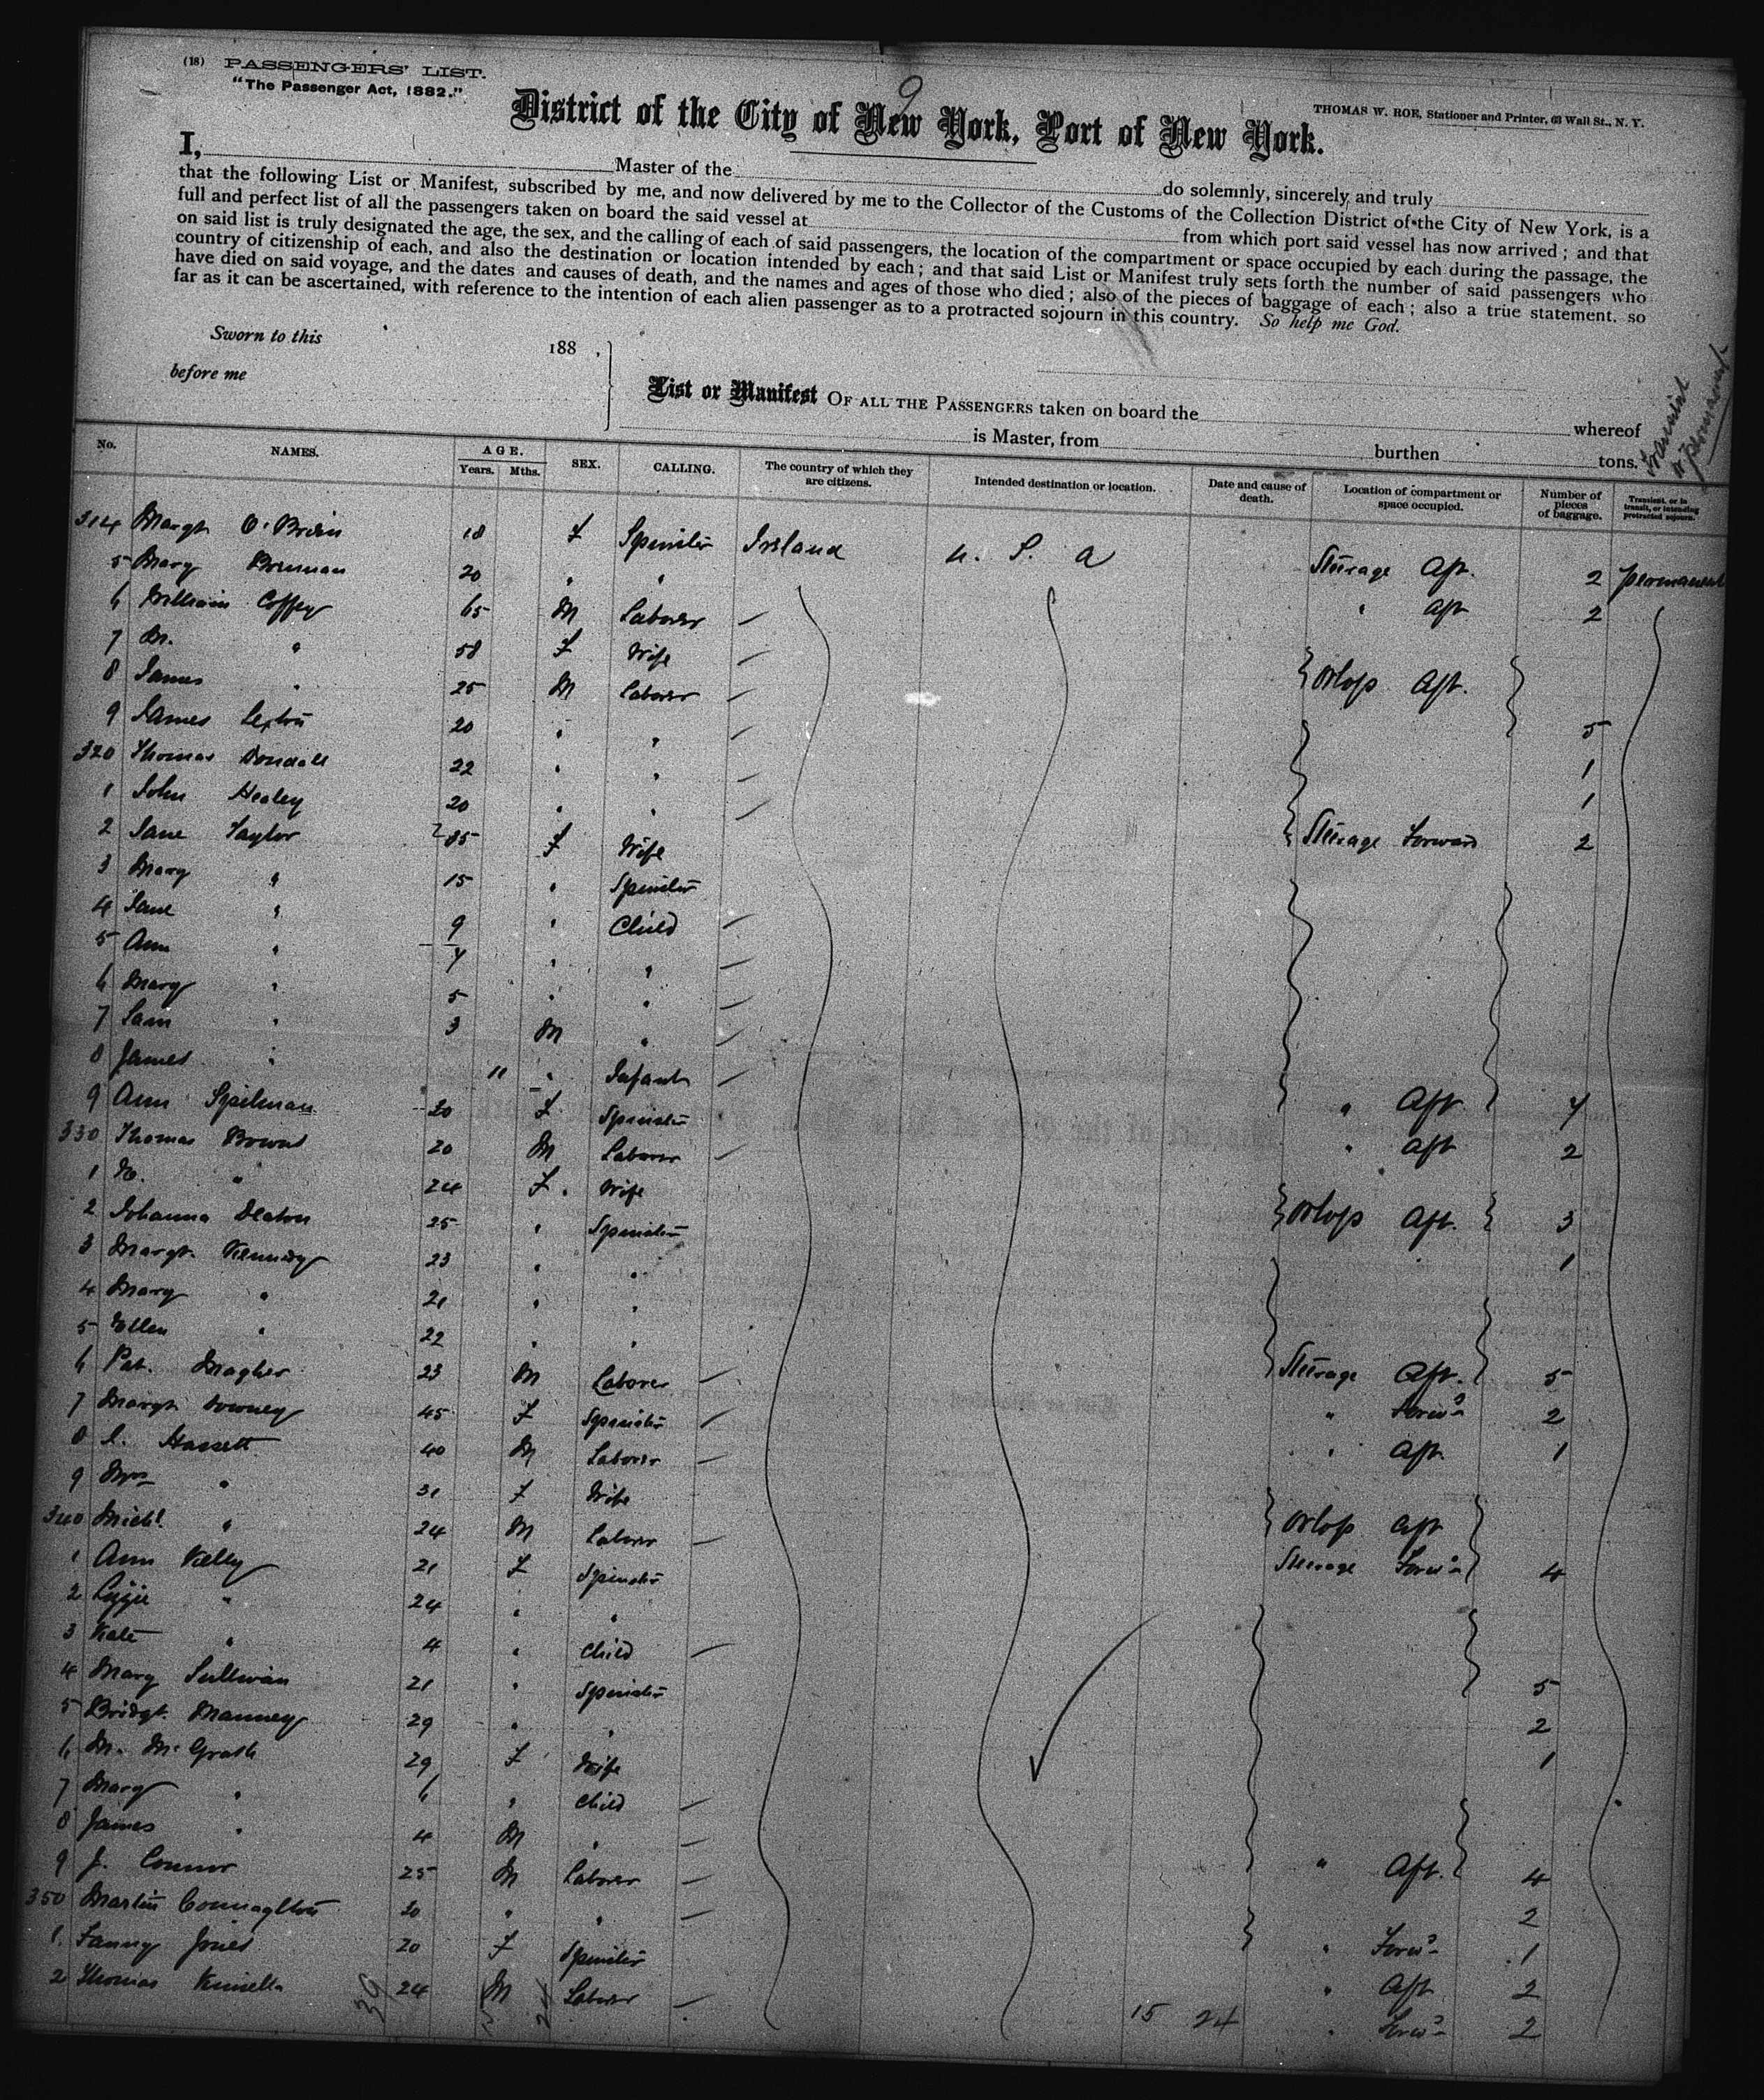 (18) PASSENGERS' LIST.
"The Passenger Act, 1882."
9
District of the City of New York, Port of New York.
THOMAS W. ROE, Stationer and Printer, 63 Wall St., N. Y.
I, Master of the do solemnly, sincerely and truly
that the following List or Manifest, subscribed by me, and now delivered by me to the Collector of the Customs of the Collection District of the City of New York, is a
full and perfect list of all the passengers taken on board the said vessel at from which port said vessel has now arrived; and that
on said list is truly designated the age, the sex, and the calling of each of said passengers, the location of the compartment or space occupied by each during the passage, the
country of citizenship of each, and also the destination or location intended by each; and that said List or Manifest truly sets forth the number of said passengers who
have died on said voyage, and the dates and causes of death, and the names and ages of those who died; also of the pieces of baggage of each; also a true statement, so
far as it can be ascertained, with reference to the intention of each alien passenger as to a protracted sojourn in this country. So help me God.
Sworn to this 188 ,
before me
List or Manifest OF ALL THE PASSENGERS taken on board the whereof
is Master, from burthen tons.
transient
permanent
No. NAMES. AGE. Years. Mths. SEX. CALLING. The country of which they are citizens. Intended destination or location. Date and cause of death. Location of compartment or space occupied. Number of pieces of baggage. Transient, or in transit, or intending protracted sojourn.
314 Margt O'Brien 18 F Spinster Ireland U. S. A Steerage Aft. 2 permanent
5 Mary Brennan 20 " " " Aft 2
6 William Coffey 65 M Laborer
7 M. " 58 F Wife Orlop Aft.
8 James " 25 M Laborer 5
9 James Sexton 20 " " 1
320 Thomas 22 " " 1
1 John Healey 20 " " Steerage Forward 2
2 Jane Taylor 35 F Wife
3 Mary " 15 " Spinster
4 Jane " 9 " Child
5 Ann " 7 " "
6 Mary " 5 " "
7 Sam " 3 M "
8 James " 11 " Infant " Aft 7
9 Ann Spilman 20 F Spinster " Aft 2
330 Thomas 20 M Laborer
1 " 24 F. Wife Orlop Aft. 3
2 Johanna 25 " Spinster 1
3 Margt. Kennedy 23 " "
4 Mary " 21 " "
5 Ellen " 22 " " Steerage Aft. 5
6 Pat. Magher 23 M Laborer " Forwd 2
7 Margt Downey 45 F Spinster " Aft. 1
8 Hassett 40 M Laborer
9 Mrs " 31 F Wife Orlop Aft
340 Michl. " 24 M Laborer Steerage Forwd 4
1 Ann Kelly 21 F Spinster
2 Lizzie " 24 " "
3 Kate " 4 " Child 5
4 Mary Sullivan 21 " Spinster 2
5 Bridgt. Manney 29 " " 1
6 M. McGrath 29 F Wife
7 Mary " 6 " Child
8 James " 4 M " " Aft. 4
9 J. Connor 25 M Laborer 2
350 Martin Connaghton 20 " " " Forwd 1
1. Fanny Jones 20 F Spinster " Aft 2
2 Thomas Kinsella 24 M Laborer " Forwd 2
39 24 15 24